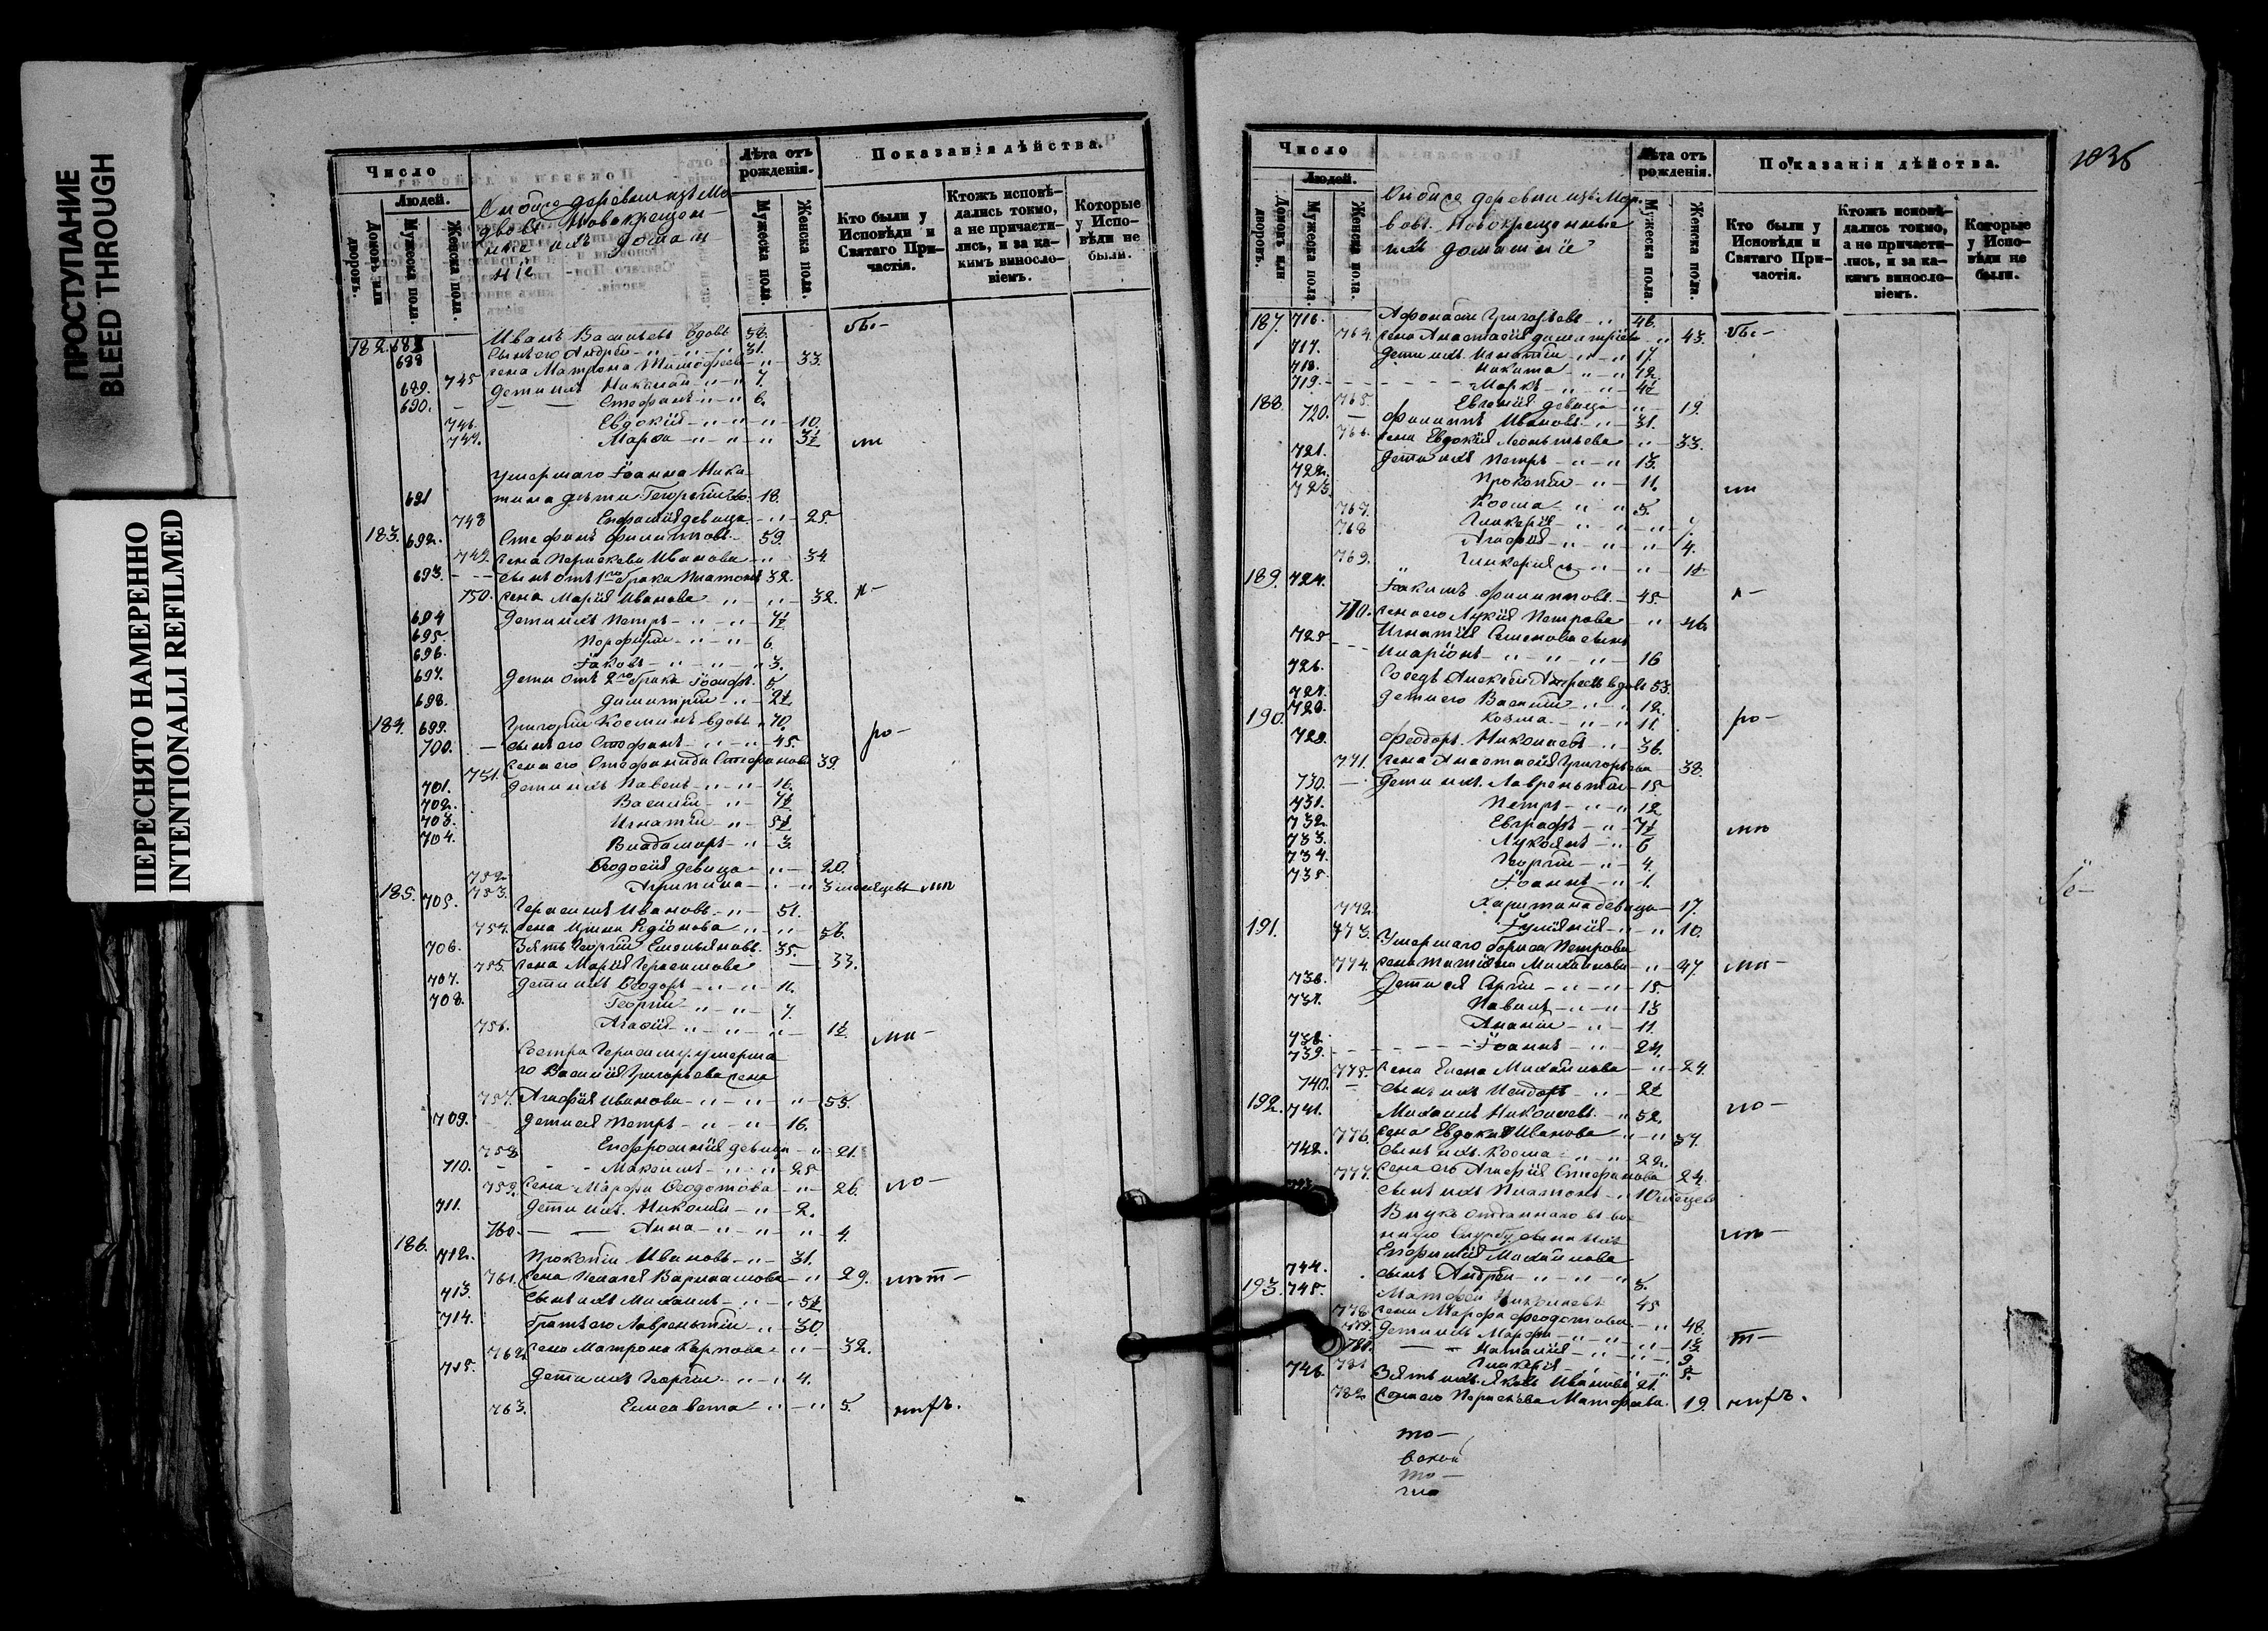 ПРОСТУПАНИЕ
BLEED THROUGH
ПЕРЕСНЯТО НАМЕРЕННО
INTENTIONALLI REFILMED
Число
Людей.
Домовъ или дворовъ.
Мужеска пола.
Женска пола.
деревни изъ Мо
двовъ Новокрещен
ные ихъ домаш
ніе
Лѣта отъ рожденія.
Мужеска пола.
Женска пола.
Показанія дѣйства.
Кто были у Исповѣди и Святаго Причастія.
Ктожъ исповѣдались токмо, а не причастились, и за какимъ винословіемъ.
Которые у Исповѣди не были.
182. Иванъ Васильевъ вдовъ 58. бы-
688 сынъ его Андрей 31.
745 жена Матрона Тимофеева 33.
689. дети ихъ Николай 7.
690. Стефанъ 6.
746. Евдокія 10.
747. Марѳа 3½ ли
умершаго Іоанна Ники-
691 тина дѣти Георгій 18.
748 Евфимія девица 25.
183. 692. Стефанъ Филипповъ 59.
749. жена Параскева Иванова 34.
693. сынъ отъ 1го брака Платонъ 32.
750. жена Марія Иванова 32. х-
694 дети ихъ Петръ 7½
695. Порфирій 6.
696. Іаковъ 3.
697. дети отъ 2го брака Іосифъ 5
698. Димитрій 2½
184. 699. Григорій Косминъ вдовъ 70.
700. сынъ его Стефанъ 45. ро-
751. жена его Стефанида Стефанова 39.
701. дети ихъ Павелъ 16.
702. Василій 7½
703. Игнатій 5½
704. Владимиръ 3.
752. Ѳеодосія девица 20.
753. Агрипина 3 месяцевъ ли
185. 705. Герасимъ Ивановъ 51.
754. жена Ирина Родіонова 56.
706. Зять Георгій Емельяновъ 35.
755. жена Марія Герасимова 33.
707. дети ихъ Ѳеодоръ 11.
708. Георгій 7.
756. Агафія 1½ ли-
Сестра Герасиму умерша-
го Василія Григорьева жена
757. Агафія Иванова 55.
709. дети ея Петръ 16.
758. Евфросинія девица 21.
710. Максимъ 25
759. жена Марѳа Ѳеодотова 26. ло-
711. дети ихъ Николай 2.
760. Анна 4.
186. 712. Прокопій Ивановъ 31.
761. жена Пелагея Варламова 29.
713. сынъ ихъ Михаилъ 5½
714. братъ его Лаврентій 30.
762. жена Матрона Карпова 32.
715. дети ихъ Георгій 4.
763. Елисавета 5.
1036
Число
Людей.
Домовъ или дворовъ.
Мужеска пола.
Женска пола.
деревни изъ Мор
вовъ Новокрещенные
ихъ домашніе
Лѣта отъ рожденія.
Мужеска пола.
Женска пола.
Показанія дѣйства.
Кто были у Исповѣди и Святаго Причастія.
Ктожъ исповѣдались токмо, а не причастились, и за какимъ винословіемъ.
Которые у Исповѣди не были.
187. 716. Афонасій Григорьевъ 46.
764. жена Анастасія Димитріева 43. бы-
717. дети ихъ Игнатій 17.
718. Никита 12.
719. Маркъ 4½
765. Евгенія девица 19.
188. 720. Филиппъ Ивановъ 31.
766. жена Евдокія Леонтьева 33.
721. дети ихъ Петръ 13.
722. Прокопій 11. ли
723. Косма 5.
767. Гликерія 7.
768 Агафія 4.
769. Гликерія 1½
189. 724. Іакимъ Филипповъ 45. х-
770. жена его Лукія Петрова 46.
725 Игнатія Семенова сынъ
Иларіонъ 16
726. Соседъ Алексѣй вдовъ 53.
727. дети его Василій 12.
728. Козма 11.
190. 729. Феодоръ Николаевъ 36. ро-
771. жена Анастасія Григорьева 38.
730. дети ихъ Лаврентій 15.
731. Петръ 12
732. Евграфъ 7½ ли
733. Лукіянъ 6
734. Георгій 4.
735. Іоаннъ 1.
772. Харитина девица 17.
773. Іуліянія 10.
191. Умершаго Бориса Петрова
774. жена Татіяна Михайлова 47. ли-
736. Дети ея Сергій 15.
737. Павелъ 13
738. Ананій 11.
739. Іоаннъ 24.
775. жена Елена Михайлова 24.
740. сынъ ихъ Исидоръ 2½
192. 741. Михаилъ Николаевъ 52. ло-
776. жена Евдокія Иванова 57.
742. сынъ ихъ Косма 22.
777. жена его Агафія Стефанова 24.
сынъ ихъ Платонъ 10 месяцев
Внукъ отданнаго въ во-
службу сына ихъ
Михайлова
744. сынъ Андрей 5.
193. 745. Матфей Николаевъ 45
778. жена Марѳа Феодотова 48.
779. дети ихъ Марѳа 13
780. Наталія 9. т-
781 Гликерія 5.
746. Зять ихъ Яковъ Ивановъ 21.
782 жена его Параскева Матфеева 19.
то-
вской
то-